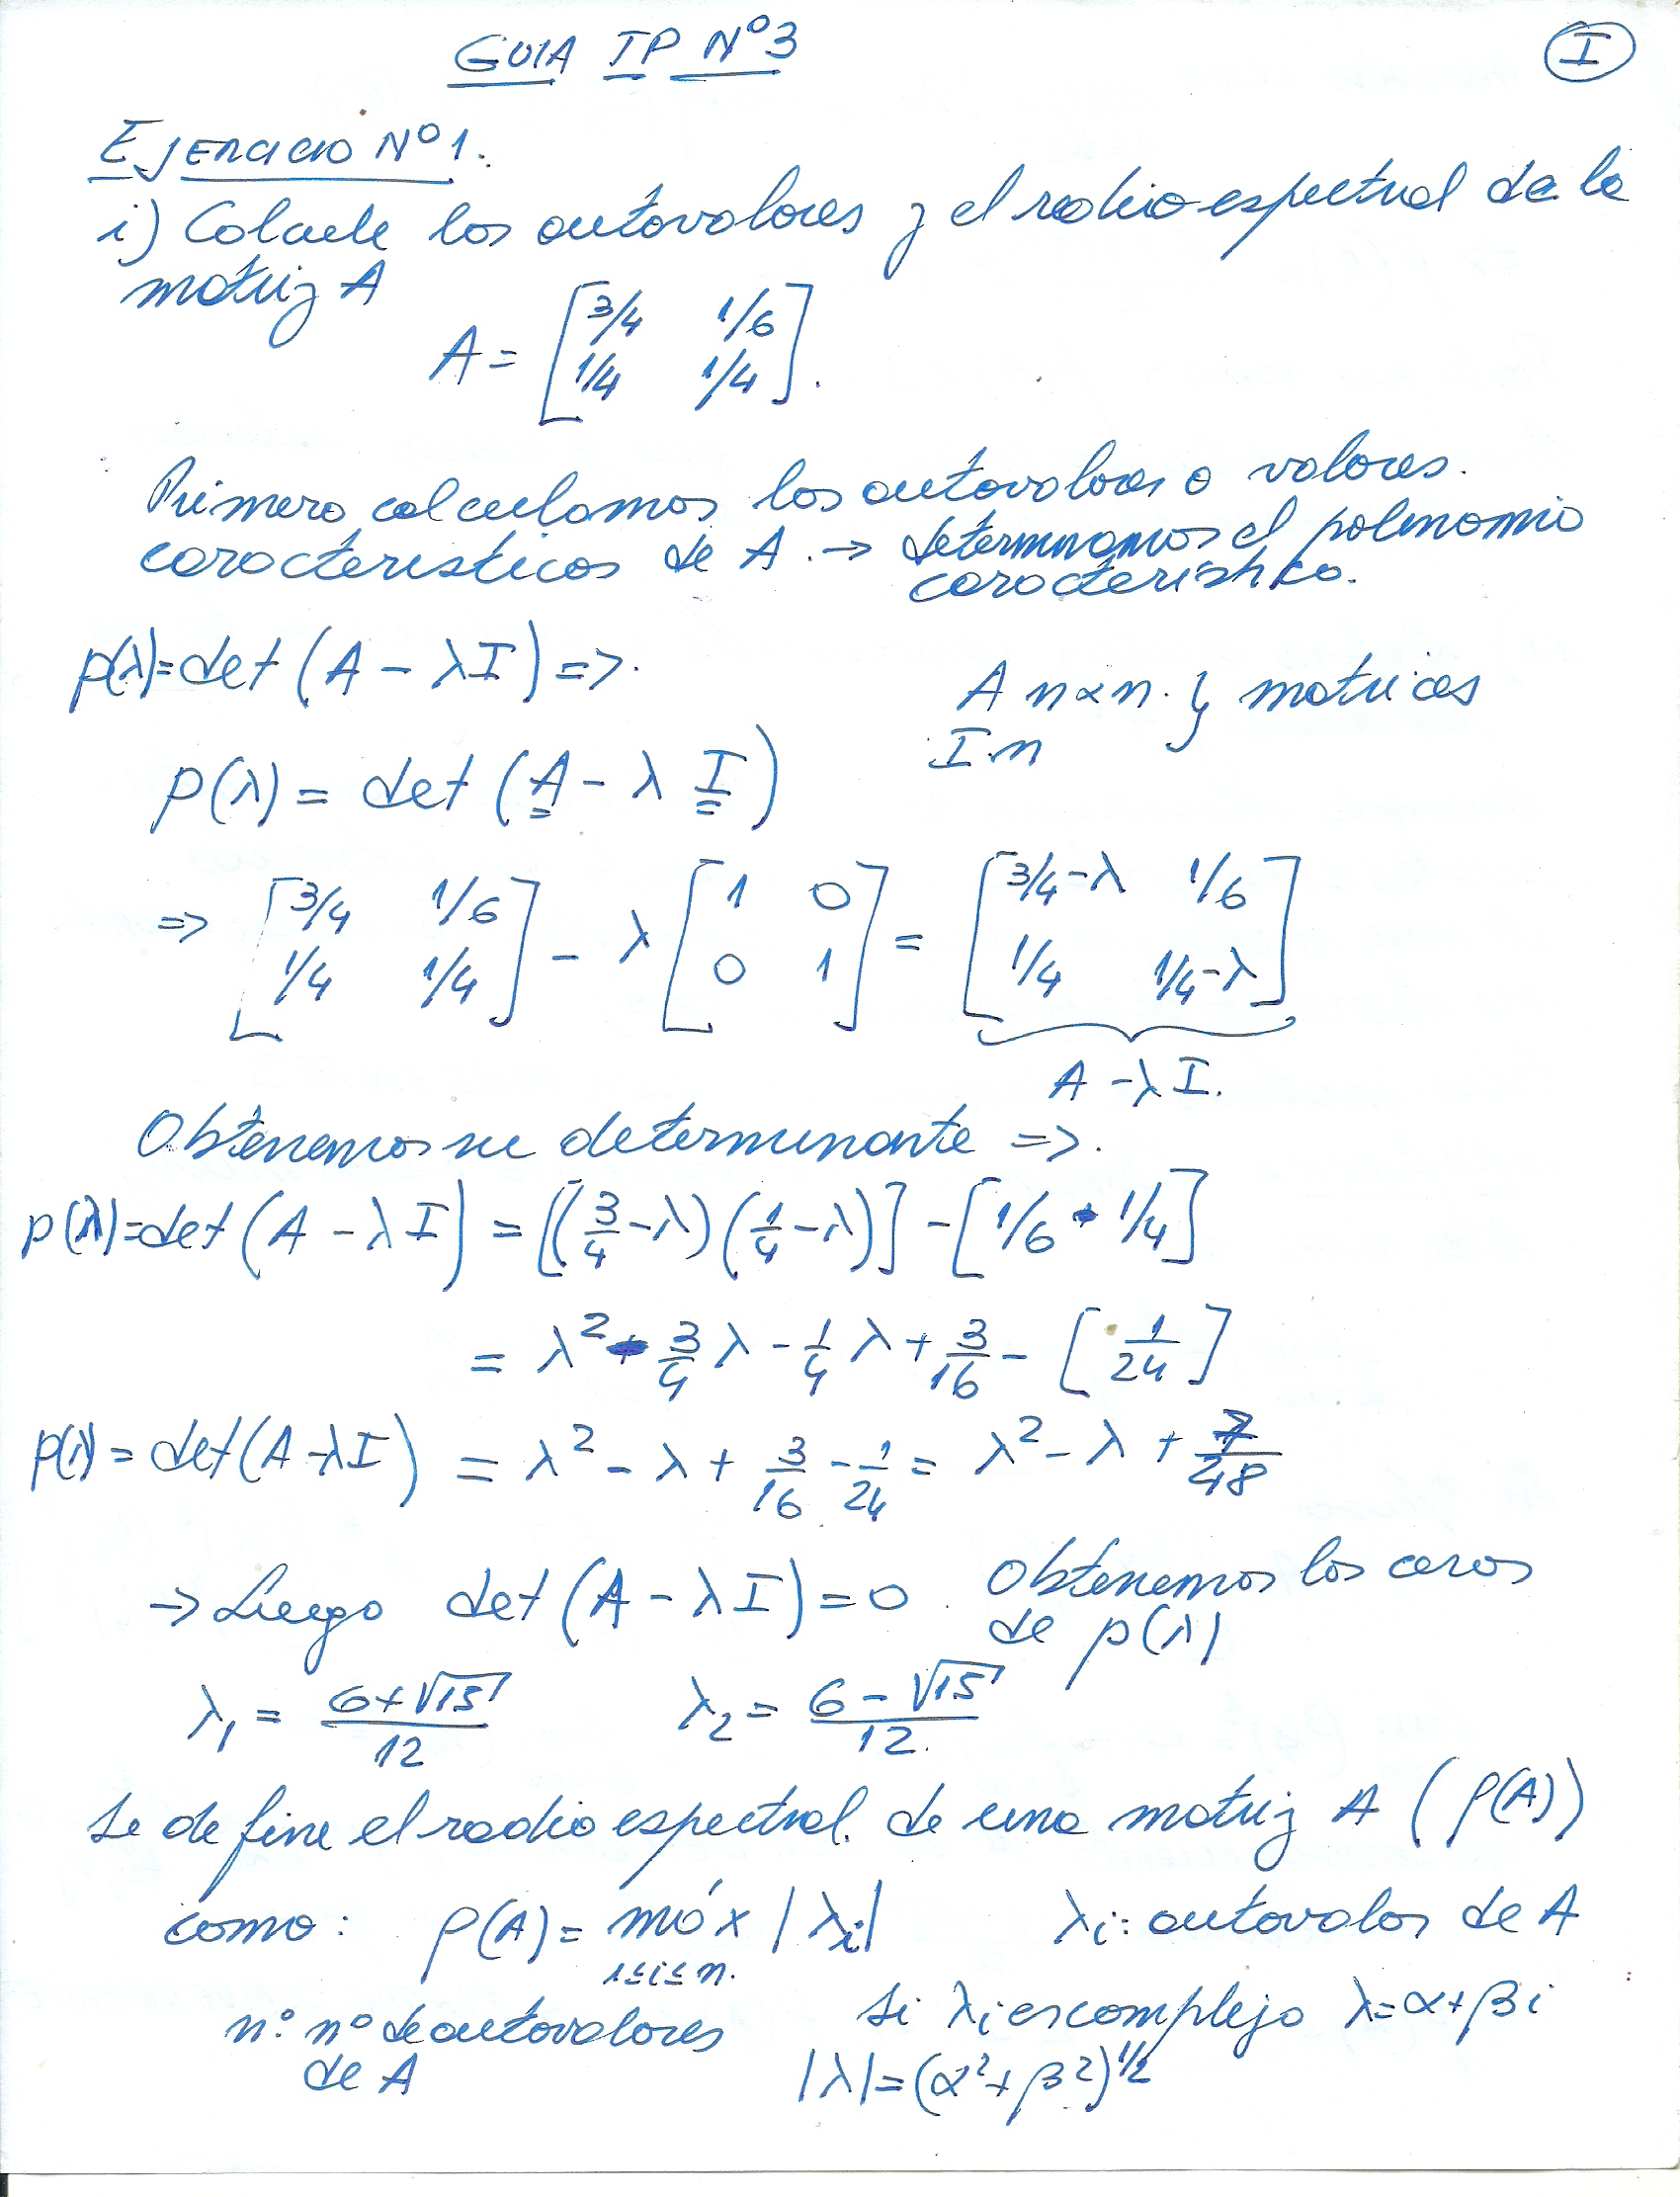 GUIA TP Nº3
I
EJERCICIO Nº1.
i) Calcule los autovalores y el radio espectral de la
matriz A
A = [3/4 1/6
1/4 1/4].
Primero calculamos los autovalores o valores.
caracteristicos de A. → determinamos el polinomio
caracteristico.
p(λ)=det (A - λI) =>.
A n×n. } matrices
I n
p(λ) = det (A - λ I)
=> [3/4 1/6
1/4 1/4] - λ [1 0
0 1] = [3/4-λ 1/6
1/4 1/4-λ]
A - λ I.
Obtenemos su determinante =>.
p(λ)=det (A - λ I) = [(3/4 - λ)(1/4 - λ)] - [1/6 · 1/4]
= λ² - 3/4 λ - 1/4 λ + 3/16 - [1/24]
p(λ) = det(A - λI) = λ² - λ + 3/16 - 1/24 = λ² - λ + 7/48
→ Luego det (A - λ I) = 0. Obtenemos los ceros
de p(λ)
λ₁ = (6+√15)/12 λ₂ = (6-√15)/12.
Se define el radio espectral. de una matriz A (ρ(A))
como: ρ(A) = máx |λi| λi: autovalos de A
1≤i≤n.
n: nº de autovalores
de A
Si λi es complejo λ=α+βi
|λ|=(α²+β²)^1/2